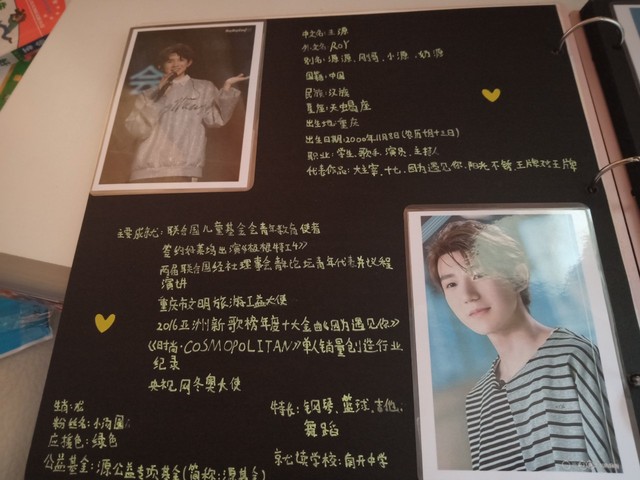 中文名:王源
外文名:ROY
别名:源源、小源、奶源
国籍:中国
民族:汉族
星座:天蝎座
出生地:重庆
出生日期:2000年11月8日(农历十月十三日)
职业:学生、歌手、演员、主持人
代表作品:大主宰、十七、因为遇见你、阳光不锈、王牌对王牌
主要成就:联合国儿童基金会青年教育使者
签约好莱坞出演《极限特工4》
两届联合国经社理事会 论坛青年代表并议程
演讲
重庆市文明旅游公益大使
2016亚洲新歌榜年度十大金曲《因为遇见你》
《时尚·COSMOPOLITAN》单人销量创造行业
纪录
央视网冬奥大使
生肖:龙
粉丝名:小汤圆
应援色:绿色
公益基金:源公益专项基金(简称:源基金)
特长:钢琴、篮球、吉他、
舞蹈
就读学校:南开中学